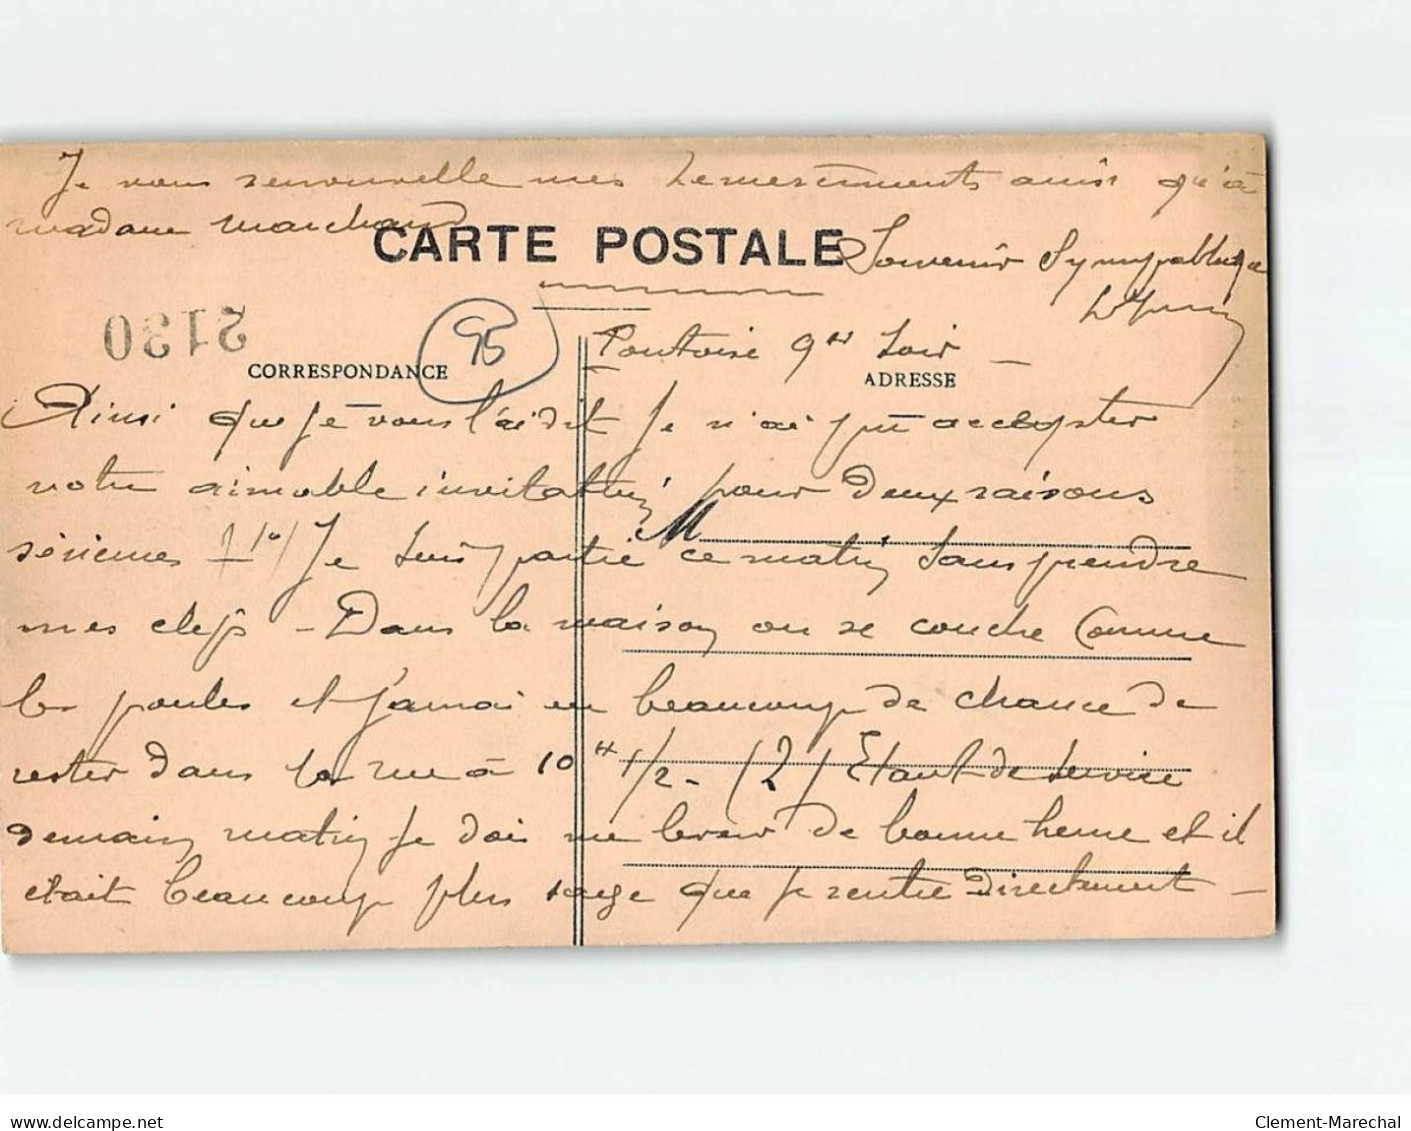 Je vous renouvelle mes remerciements ainsi qu'à
madame Marchand
CARTE POSTALE
Souvenir Sympathique
2130
95
Pontoise 9 hs soir —
CORRESPONDANCE
ADRESSE
Ainsi que je vous l'ai dit je n'ai pu accepter
votre aimable invitation pour deux raisons
M
sérieuses 1o) Je suis partie ce matin sans prendre
mes clefs - Dans la maison on se couche comme
les poules et j'amais eu beaucoup de chance de
rester dans la rue à 10 hs 1/2 - (2) Etant de service
demain matin je dois me lever de bonne heure et il
etait beaucoup plus sage que je rentre directement —
Clement-Marechal
www.delcampe.net